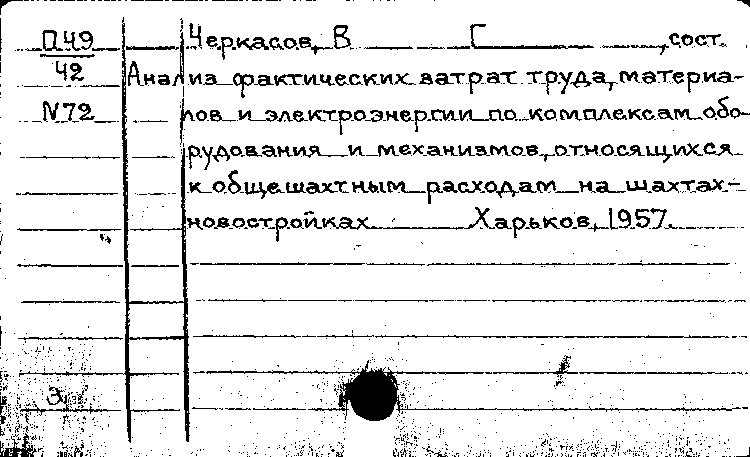 П49 Черкасов, В Г , сост.
42 Анализ фактических затрат труда, материа-
N72 лов и электроэнергии по комплексам обо-
рудования и механизмов, относящихся
к общешахтным расходам на шахтах-
новостройках Харьков, 1957.
а